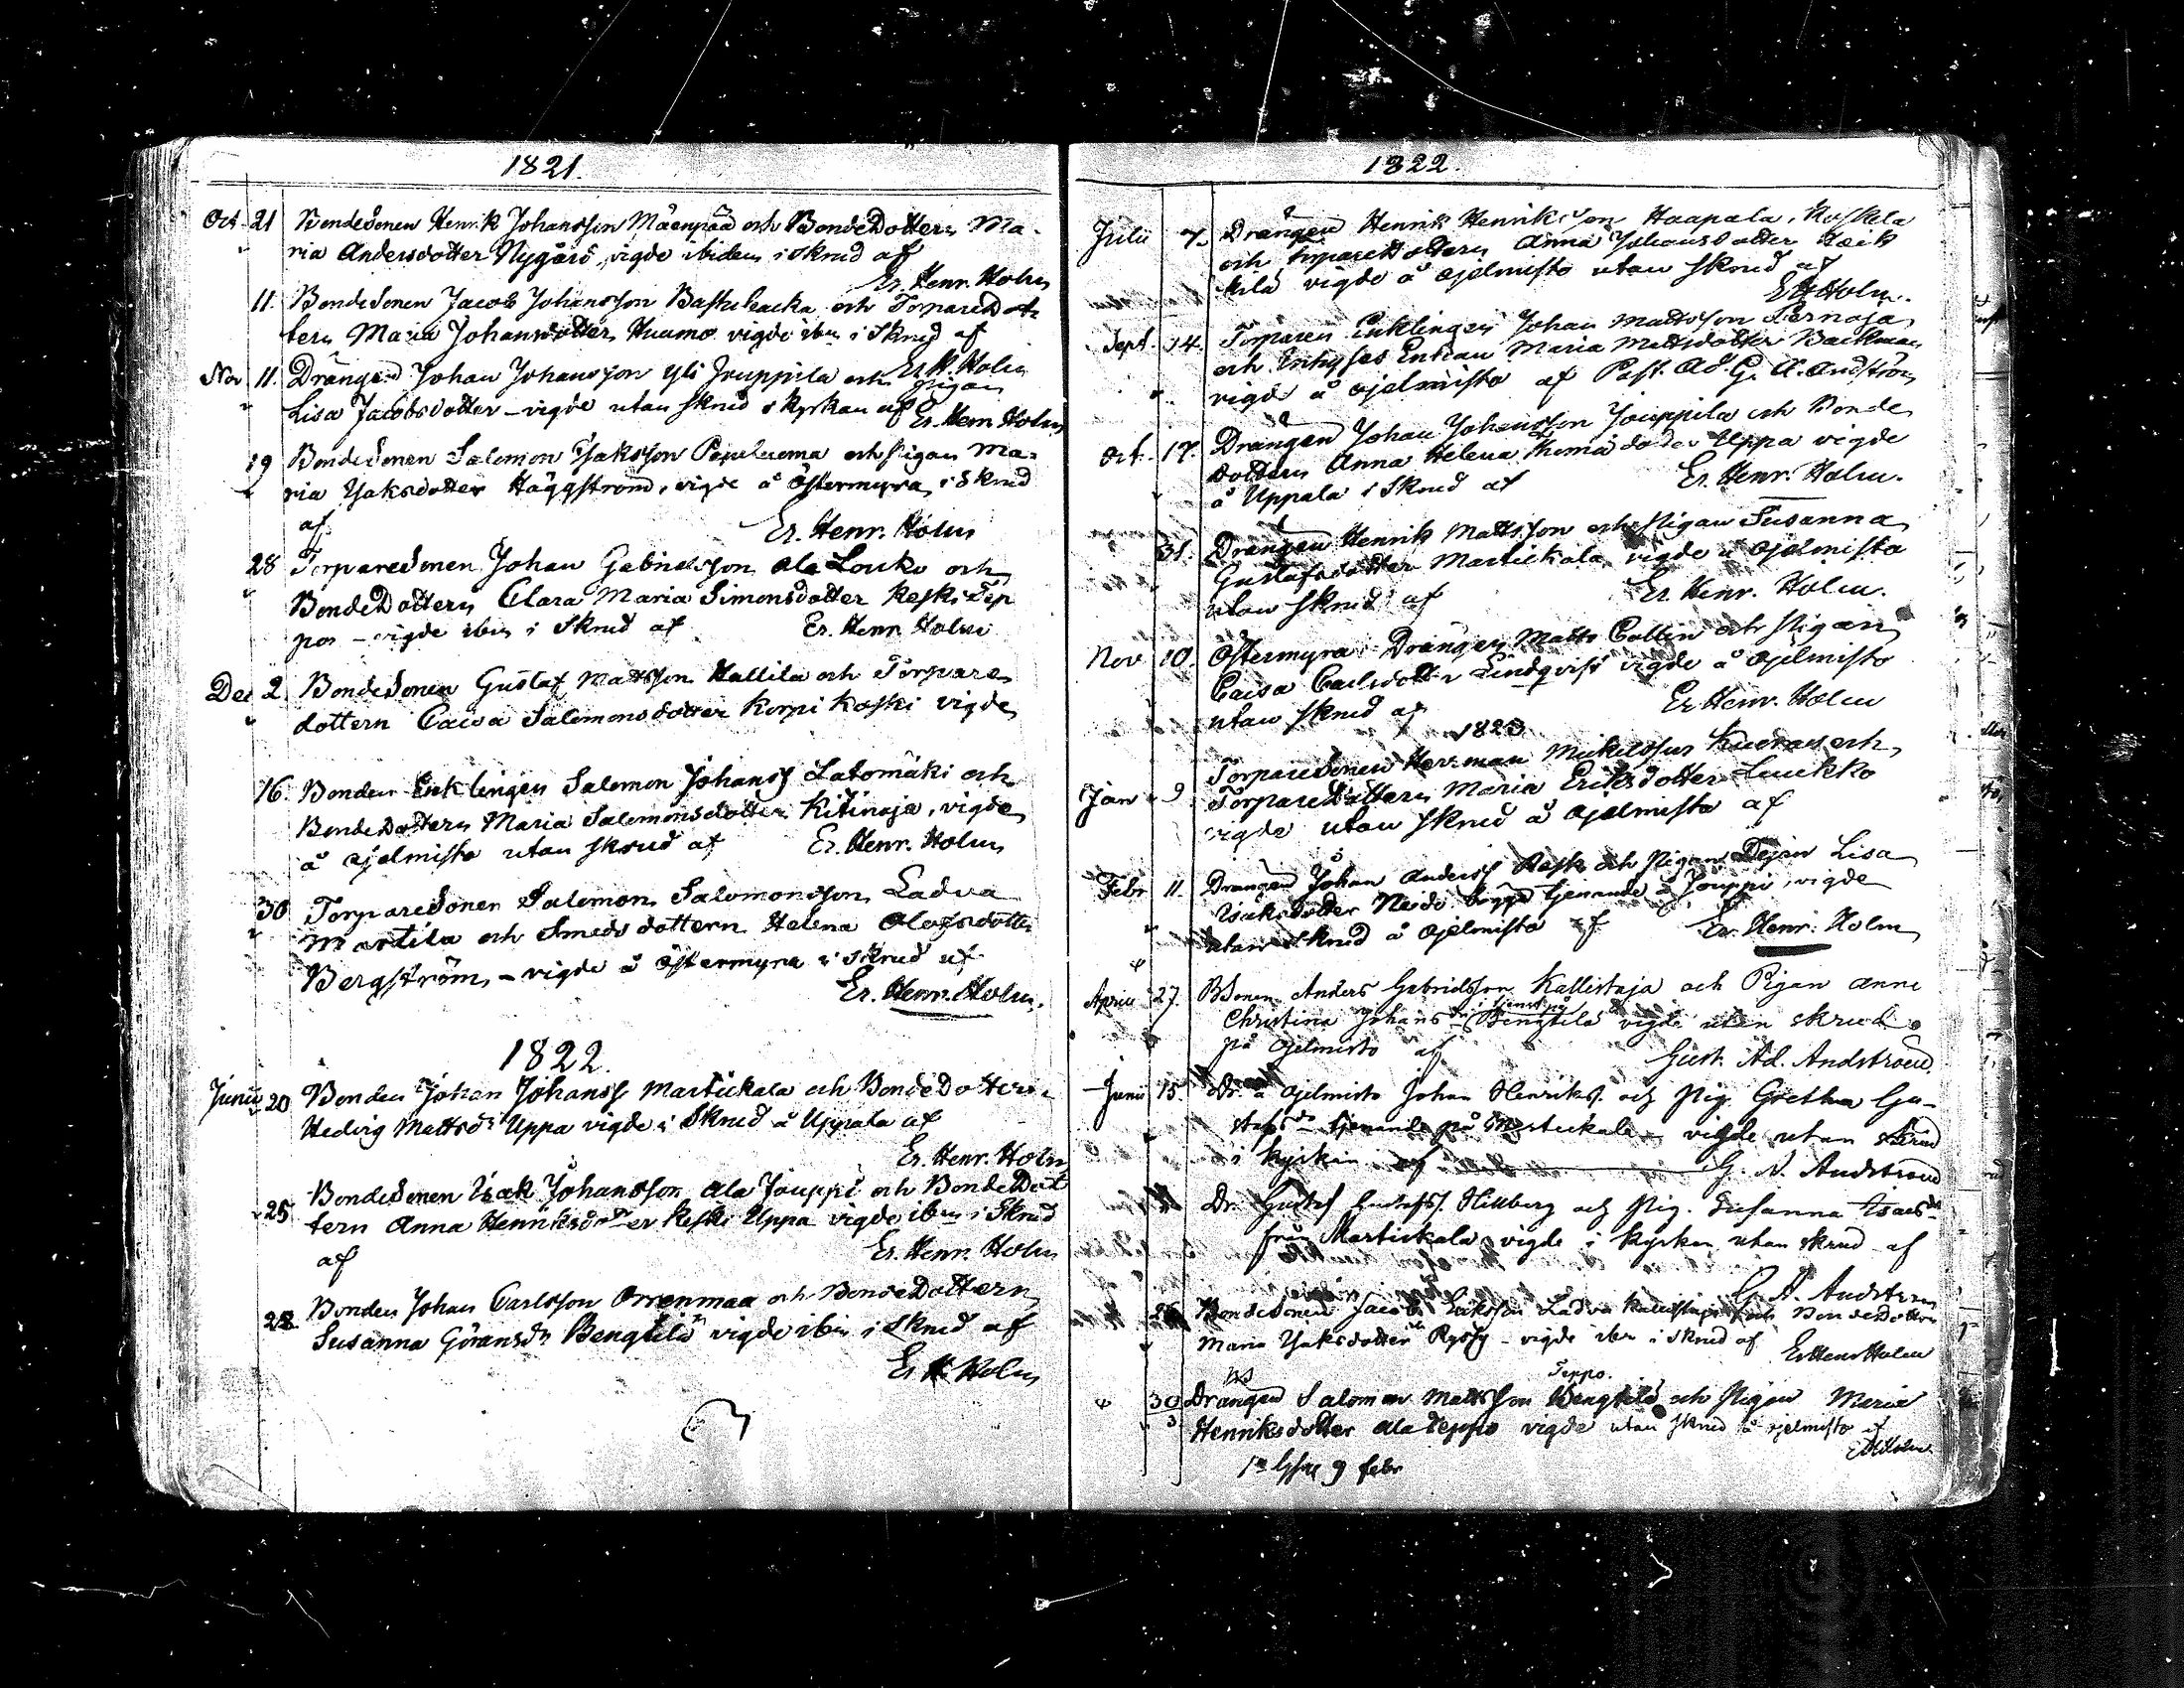 1821.
Oct. 21 Bondesonen Henrik Johansson Mäenpää och BondeDottern Ma-
ria Andersdotter Nygård, vigde ibidem i skrud af
Er. Henr. Holm
11. BondeSonen Jacob Johansson Bastubacka och TorpareDot-
tern Maria Johansdotter Huumo vigde ibm i Skrud af
Er H. Holm
Nov 11. Drängen Johan Johansson Yli Jouppila och Pigan
Lisa Jacobsdotter – vigde utan skrud i kyrkan af Er. Henr. Holm
19 BondeSonen Salomon Isaksson och Pigan Ma-
ria Isaksdotter Häggström, vigde å Östermyra i Skrud
af Er. Henr. Holm
28 TorpareSonen Johan Gabrielsson Ala Louko och
BondeDottern Clara Maria Simonsdotter Keski Tep
po – vigde ibm i Skrud af Er. Henr. Holm
Dec 2. BondeSonen Gustaf Mattsson Hallila och Torpare
dottern Caisa Salomonsdotter Korpi Koski vigde
16. Bonden Enklingen Salomon Johanss Latomäki och
BondeDottern Maria Salomonsdotter Kitinoja, vigde
å Ojelmisto utan skrud af Er. Henr. Holm
30 TorpareSonen Salomon Salomonsson Ladva
Martila och Smedsdottern Helena Olofsdotter
Bergström, – vigde å Östermyra i skrud af
Er. Henr. Holm.
1822.
Junii 20 Bonden Johan Johanss Martickala och BondeDottern
Hedvig Mattsdr Uppa vigde i Skrud å Uppala af
Er. Henr. Holm
25. BondeSonen Isak Johansson Ala Jouppi och BondeDot
tern Anna Henriksdotter Keski Uppa vigde ibm i Skrud
af Er. Henr. Holm
28. Bonden Johan Carlsson Orrenmaa och BondeDottern
Susanna Göransdr Bengtilä vigde ibm i skrud af
Er H Holm
1822.
Julii 7. Drängen Henrik Henriksson Haapala, Koskela
och TorpareDottern Anna Johansdotter Heik
kilä vigde å Ojelmisto utan skrud af
E H Holm.
Sept. 14. Torparen Enklingen Johan Mattsson Pernaja
och Enkan Maria Mattsdotter Backman
vigde å Ojelmisto af Past. Ad. G. A. Andström
Oct. 17. Drängen Johan Johansson Jouppila och Bonde
dottern Anna Helena Thomasdotter Uppa vigde
å Uppala i Skrud af Er. Henr. Holm.
31. Drängen Henrik Mattsson och Pigan Susanna
Gustafsdotter Martickala vigde å Ojelmisto
utan skrud af Er. Henr. Holm.
Nov 10. Östermyra Drängen Matts Collin och Pigan
Caisa Carlsdotter Lindqvist vigde å Ojelmisto
utan skrud af Er Henr. Holm
1823
Jan 9 TorpareSonen Herrman Mickelsson och
TorpareDottern Maria Eriksdotter Luukko
vigde utan skrud å Ojelmisto af
Febr 11. Drängen Johan Anderss Rask och Pigan Lisa
Isaksdotter tjenande å Jouppi, vigde
utan skrud å Ojelmisto af Er. Henr. Holm
April 27. BSonen Anders Gabrielsson Kallistaja och Pigan Anna
Christina Johansdr i tjenst på Bengtilä vigde utan skrud
på Ojelmisto af Gust. Ad. Andström
Junii 15. Dr. å Ojelmisto Johan Henrikss. och Pig. Gretha Gu-
stafsdr tjenande på Martickala vigde utan skrud
i kyrkan af G. A. Andström
Dr. Gustaf Gustafss. Hillberg och Pig. Susanna Isacsdr
från Martickala vigde i kyrkan utan skrud af
G. A. Andström
26 BondeSonen Jacob Eriksson Ladva och BondeDottern
Maria Isaksdotter Ryssy – vigde ibm i skrud af Er Henr Holm
Teppo.
30 Drängen Salomon Mattsson Bengtilä och Pigan Maria
3 Henriksdotter Ala Teppo vigde utan skrud å Ojelmisto af
E H Holm.
9 febr